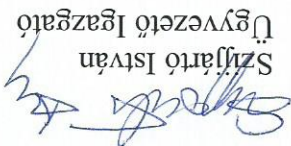 Szijjártó István
Ügyvezető Igazgató